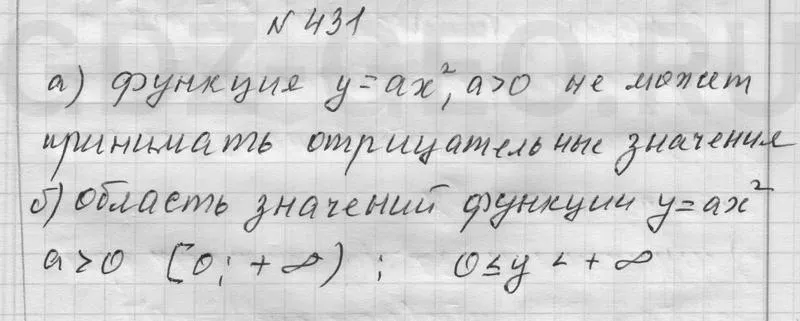 N 431
а) функция y=ax², a>0 не может
принимать отрицательные значения
б) область значений функции y=ax²
a>0 [0; +∞) ; 0≤y<+∞